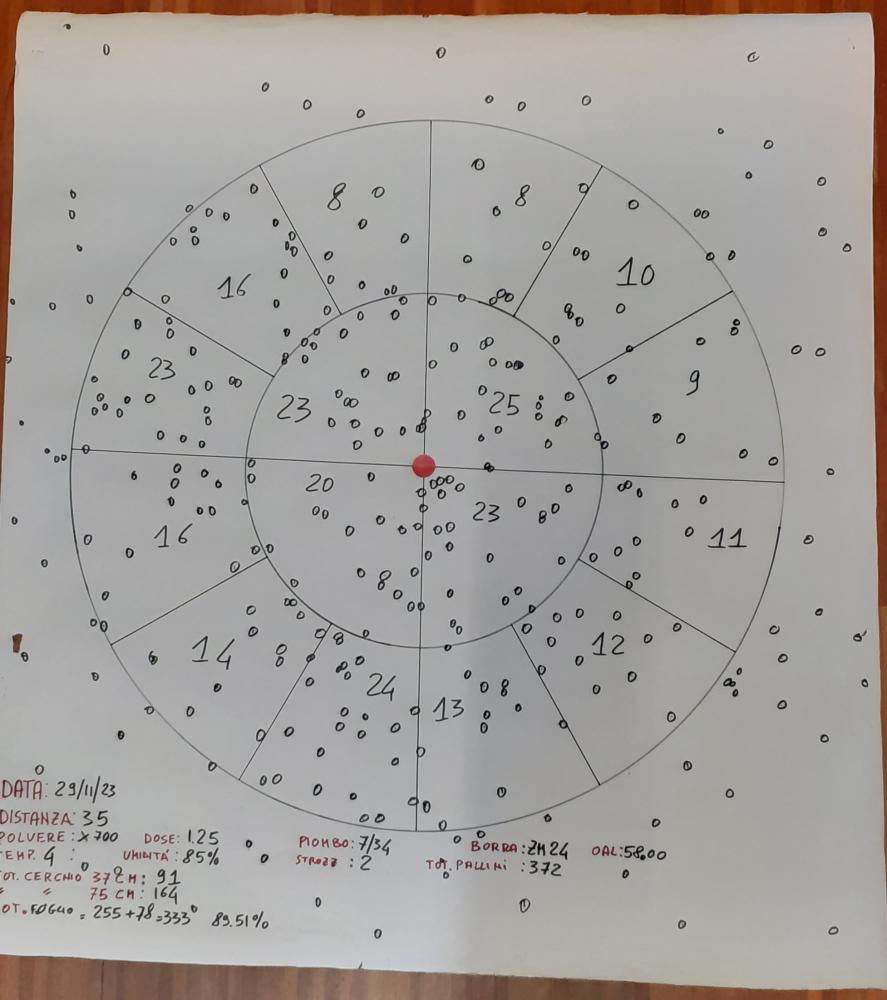 8
8
16
10
23
9
23
25
20
23
16
11
14
12
24
13
DATA: 29/11/23
DISTANZA: 35
POLVERE: X700 DOSE: 1.25 PIOMBO: 7/34 BORRA: ZM24 OAL: 58,00
TEMP. 4 : UMILITÀ: 85% STROZZ: 2 TOT. PALLINI: 372
TOT. CERCHIO 37 CM: 91
" " 75 CM: 164
TOT. FOGLIO = 255+78=333 89.51%